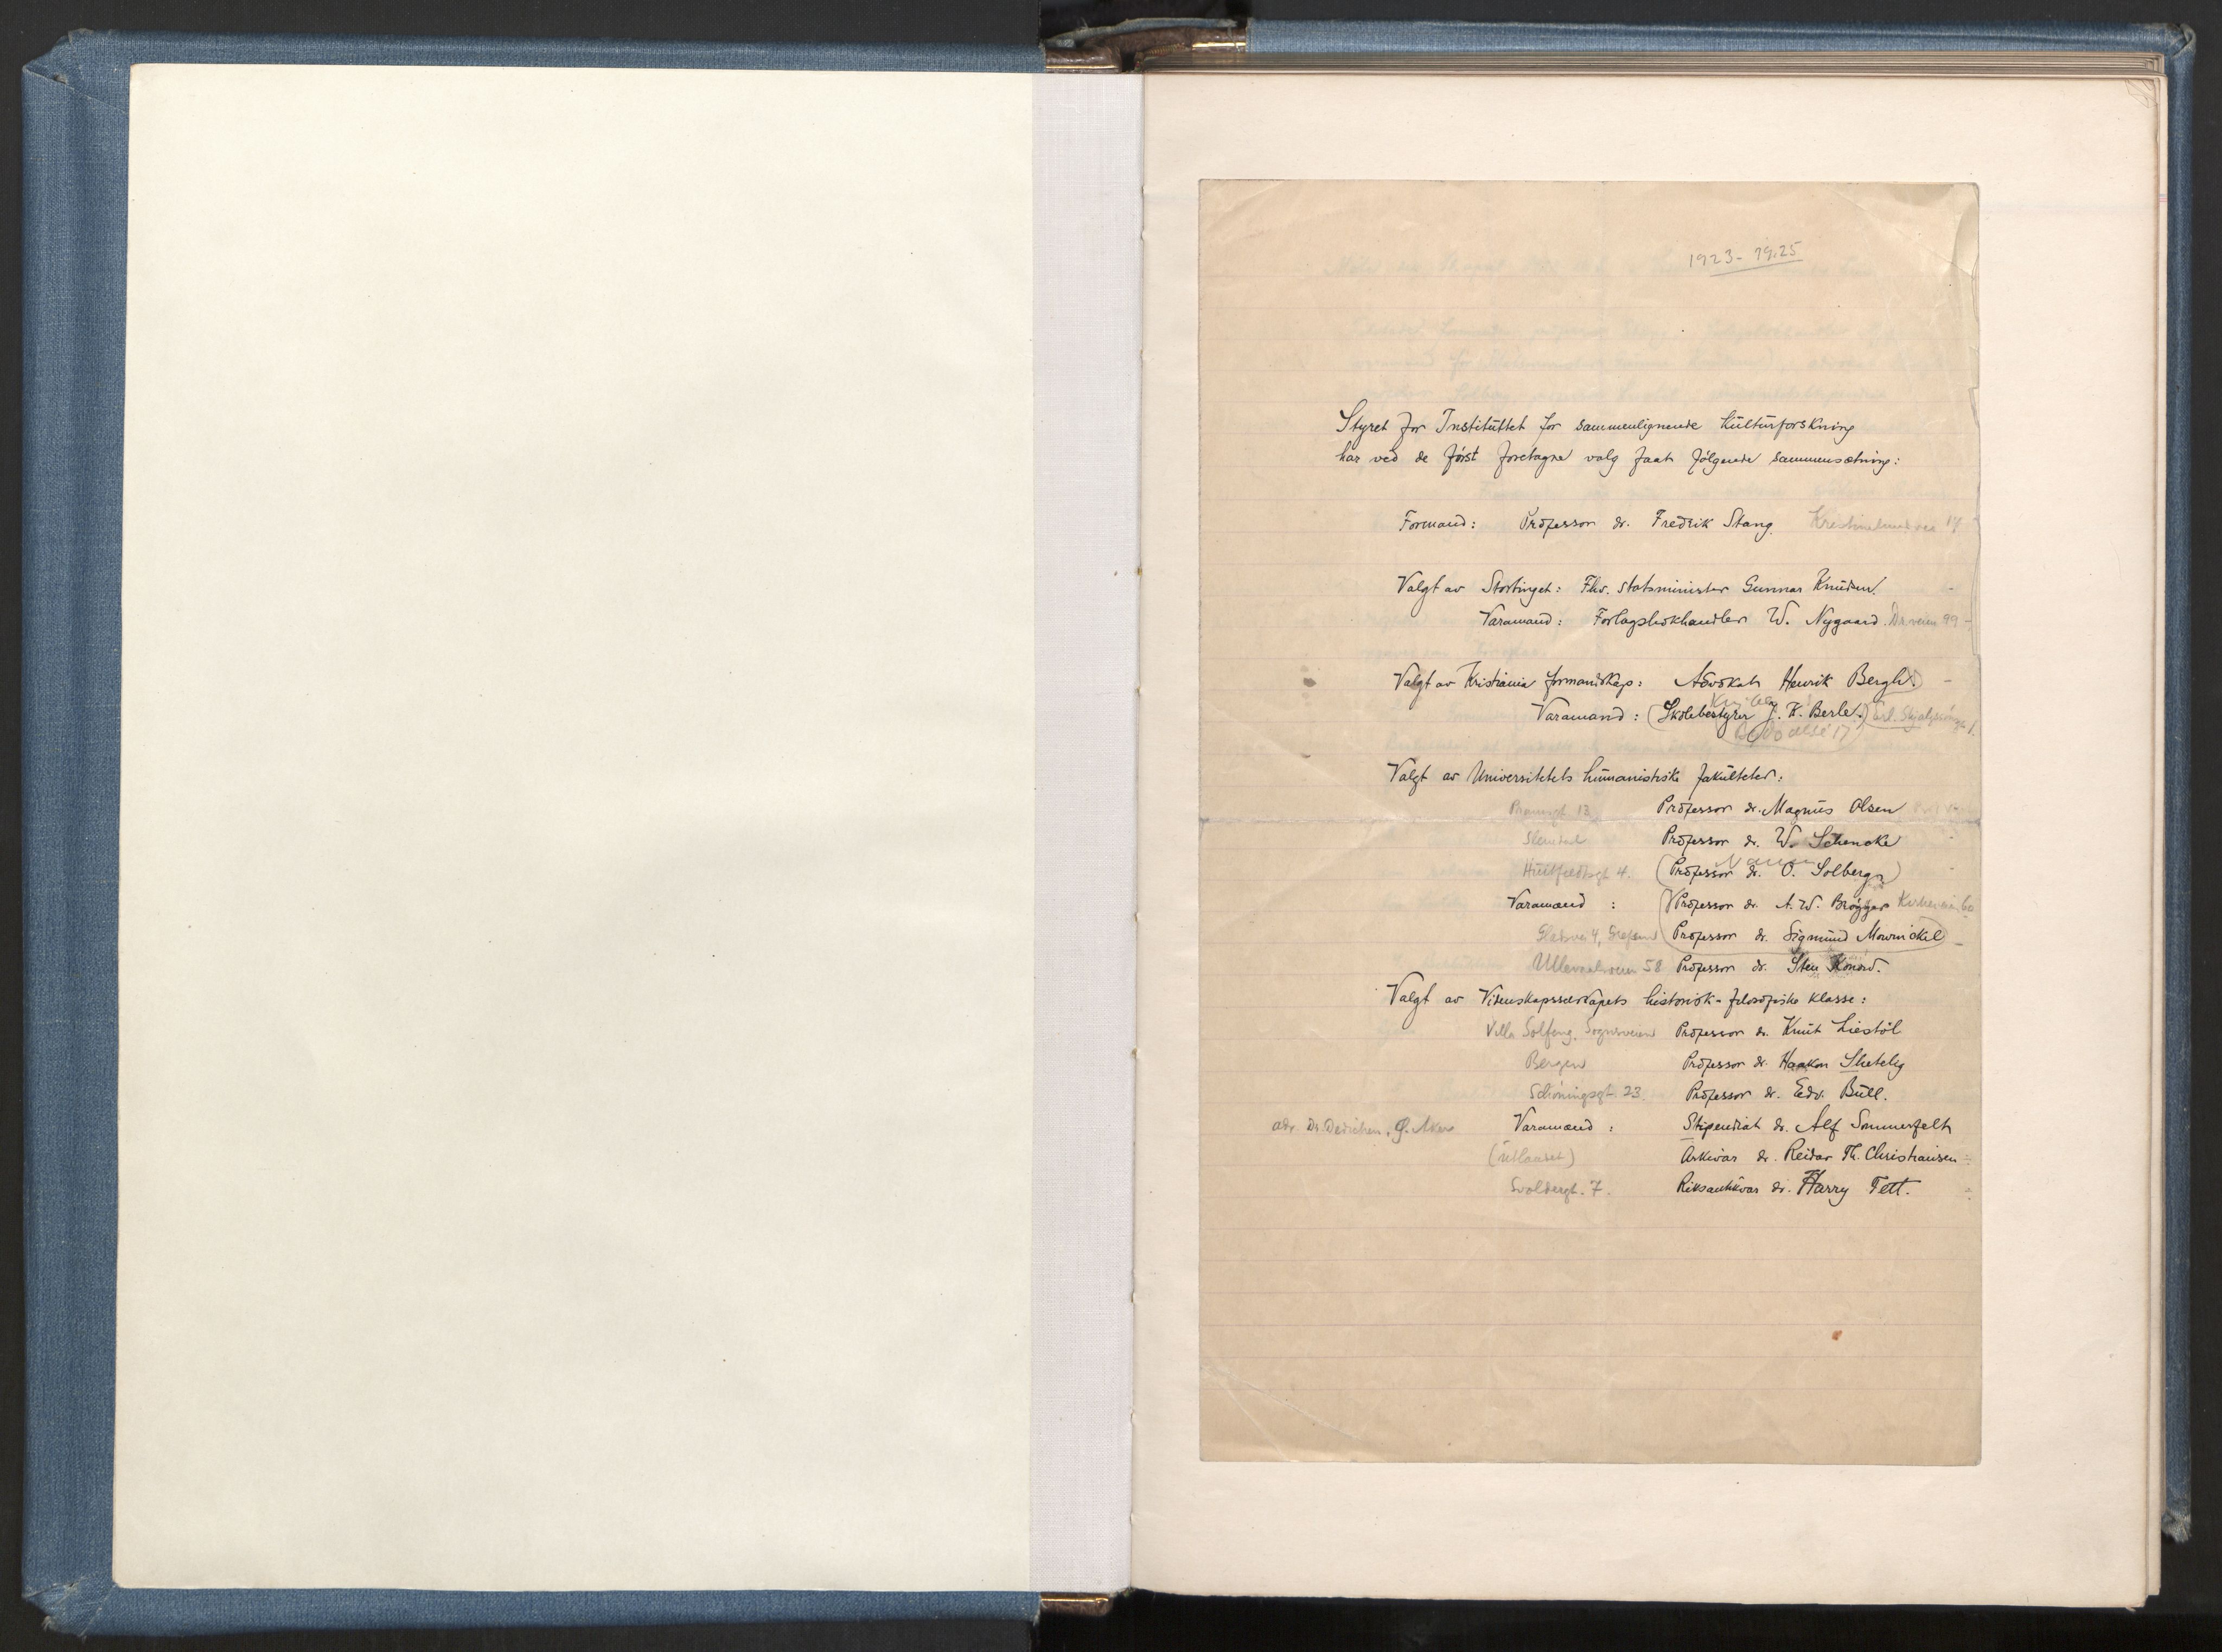 1923-1925
Styret for Instituttet for sammenlignende kulturforskning
har ved de først foretagne valg faat følgende sammensætning:
Formand: Professor dr. Fredrik Stang. Kristinelundvei
Valgt av Stortinget: Fhv. statsminister Gunnar Knudsen.
Varamand: Forlagsbokhandler W. Nygaard. Dr.veien 99
Valgt av Kristiania formandskap: Advokat Henrik Bergh.
Varamand: (Skolebestyrer J. K. Berle.)
Valgt av Universitetets humanistiske fakulteter:
Professor dr. Magnus Olsen
Professor dr. W. Schencke
Huitfeldtsgt 4. (Professor dr. O. Solberg)
Varamænd: Professor dr. A. W. Brøgger Kirkeveien
Professor dr. Sigmund Mowinckel
Ullevaalsveien 58 Professor dr. Sten Konow.
Valgt av Videnskapsselskapets historisk-filosofiske klasse:
Villa Solfeng, Sognsveien Professor dr. Knut Liestøl
Bergen Professor dr. Haakon Shetelig
Schøningsgt. 23. Professor dr. Edv. Bull.
adr. Dr. Dedichen, Ø. Aker Varamænd: Stipendiat dr. Alf Sommerfelt
(utlandet) Arkivar dr. Reidar Th. Christiansen
Svoldergt. 7. Riksantikvar dr. Harry Fett.